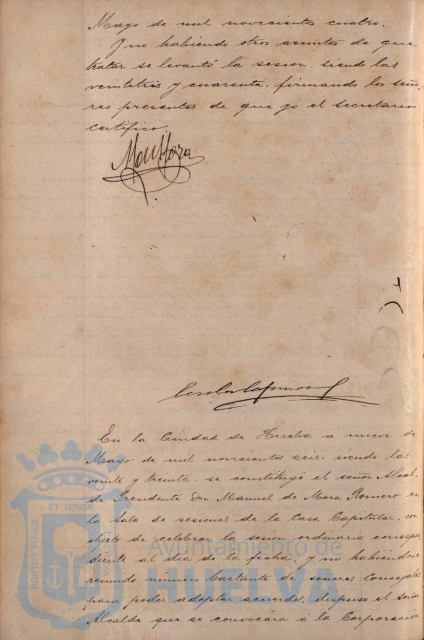 Mayo de mil novecientos cuatro.
Y no habiendo otros asuntos de que
tratar se levantó la sesion, siendo las
veintitres y cuarenta, firmando los seño-
res presentes de que yo el secretario
certifico.
En la Ciudad de Huelva a nueve de
Mayo de mil novecientos seis, siendo las
veinte y treinta, se constituyó el señor Alcal-
de Presidente Don Manuel de Mora Romero en
la Sala de sesiones de la Casa Capitular, con
objeto de celebrar la sesion ordinaria correspon-
diente al dia de la fecha, y no habiendose
reunido número bastante de señores Concejales
para poder adoptar acuerdos, dispuso el señor
Alcalde que se convocára á la Corporacion
Ayuntamiento de
HUELVA
PORTUS MARIS
ET TERRE